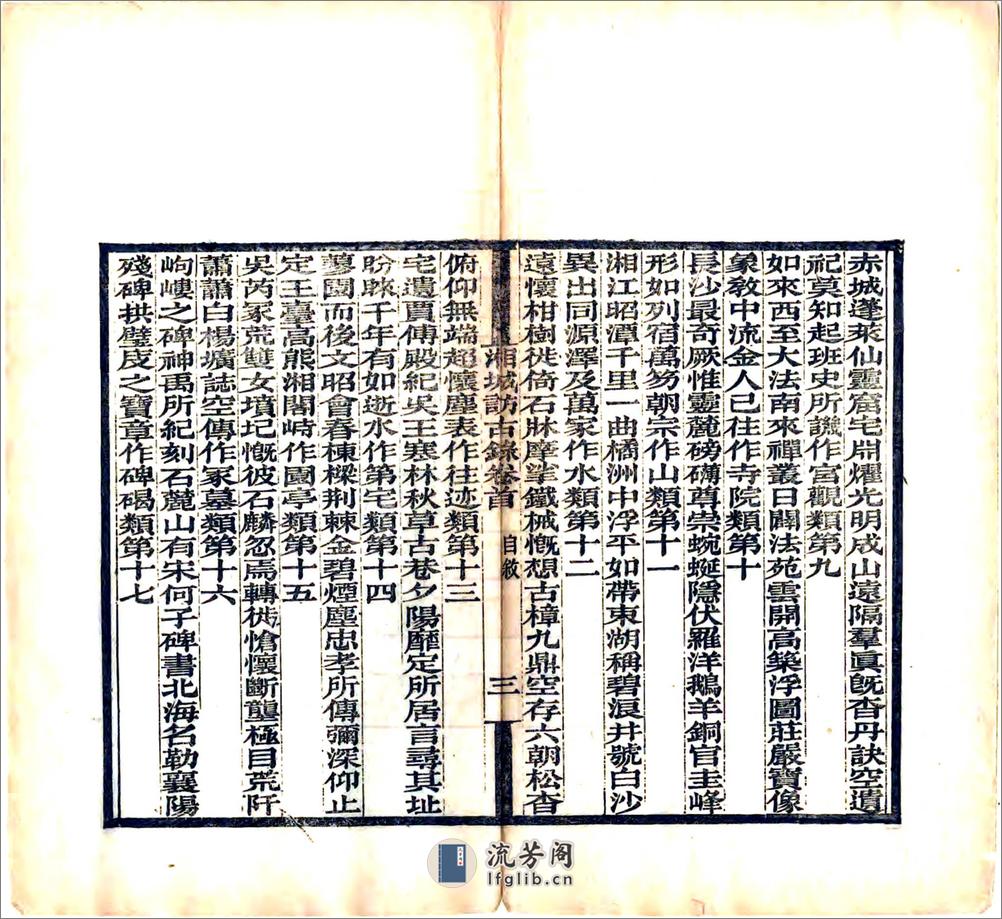 赤城蓬萊仙靈窟宅鼎燿光明成山遠隔羣眞旣杳丹訣空遺
祀莫知起班史所譏作宮觀類第九
如來西至大法南來禪叢日闢法苑雲開高築浮圖莊嚴寶像
象敎中流金人已往作寺院類第十
長沙最奇厥惟靈麓磅礴尊崇蜿蜒隱伏羅洋鵝羊銅官圭峰
形如列宿萬笏朝宗作山類第十一
湘江昭潭千里一曲橘洲中浮平如帶束湖稱碧浪井號白沙
異出同源澤及萬家作水類第十二
遠懷柑樹徙倚石牀摩挲鐵械慨想古樟九鼎空存六朝松杳
湘城訪古錄卷首 自敘 三
俯仰無端超懷塵表作往迹類第十三
宅遺賈傅殿紀吳王寒林秋草古巷夕陽靡定所居言尋其址
盼睞千年有如逝水作第宅類第十四
蓼園而後文昭會春棟樑荆棘金碧煙塵忠孝所傳彌深仰止
定王臺高熊湘閣峙作園亭類第十五
吳芮冢荒雙女墳圮慨彼石麟忽焉轉徙愴懷斷壟極目荒阡
蕭蕭白楊壙誌空傳作冢墓類第十六
岣嶁之碑神禹所紀刻石麓山有宋何子碑書北海名勒襄陽
殘碑拱璧庋之寶章作碑碣類第十七
流芳阁
lfglib.cn